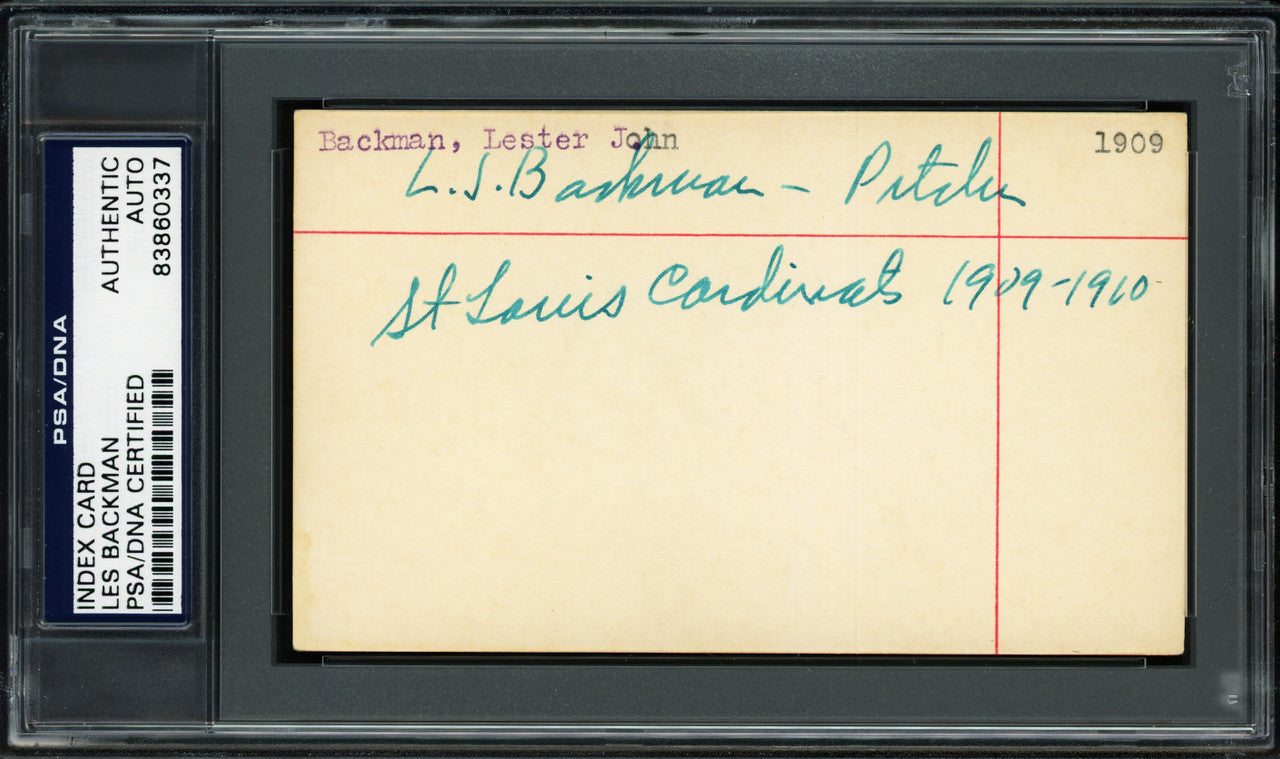 PSA/DNA
INDEX CARD
LES BACKMAN
PSA/DNA CERTIFIED
AUTHENTIC
AUTO
83860337
Backman, Lester John 1909
L.J. Backman - Pitcher
St Louis Cardinals 1909-1910